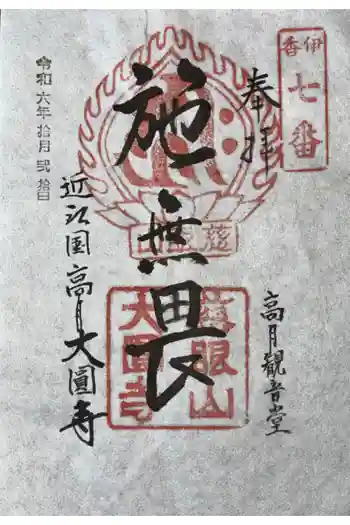 伊香
七番
奉拝
高月觀音堂
施無畏
慈眼山
慈眼山
大圓寺
近江国高月大圓寺
令和六年拾月弐拾日